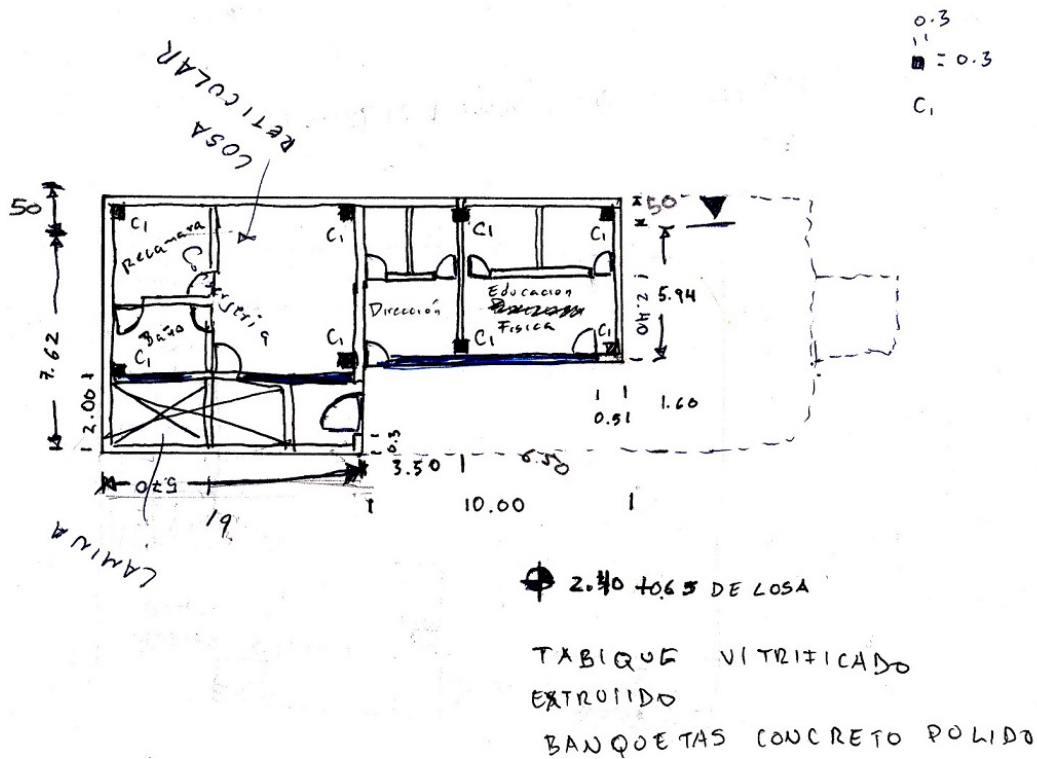 0.3
= 0.3
C1
LOSA
RETICULAR
50
7.62
2.00
C1
Recamara
C1
Baño
C1
C1
C1
C1
Dirección
Educacion
Fisica
C1
C1
50
5.94
2.40
1.60
0.51
0.3
3.50
6.50
10.00
5.70
19
LAMINA
2.40 +0.65 DE LOSA
TABIQUE VITRIFICADO
EXTRUIDO
BANQUETAS CONCRETO POLIDO